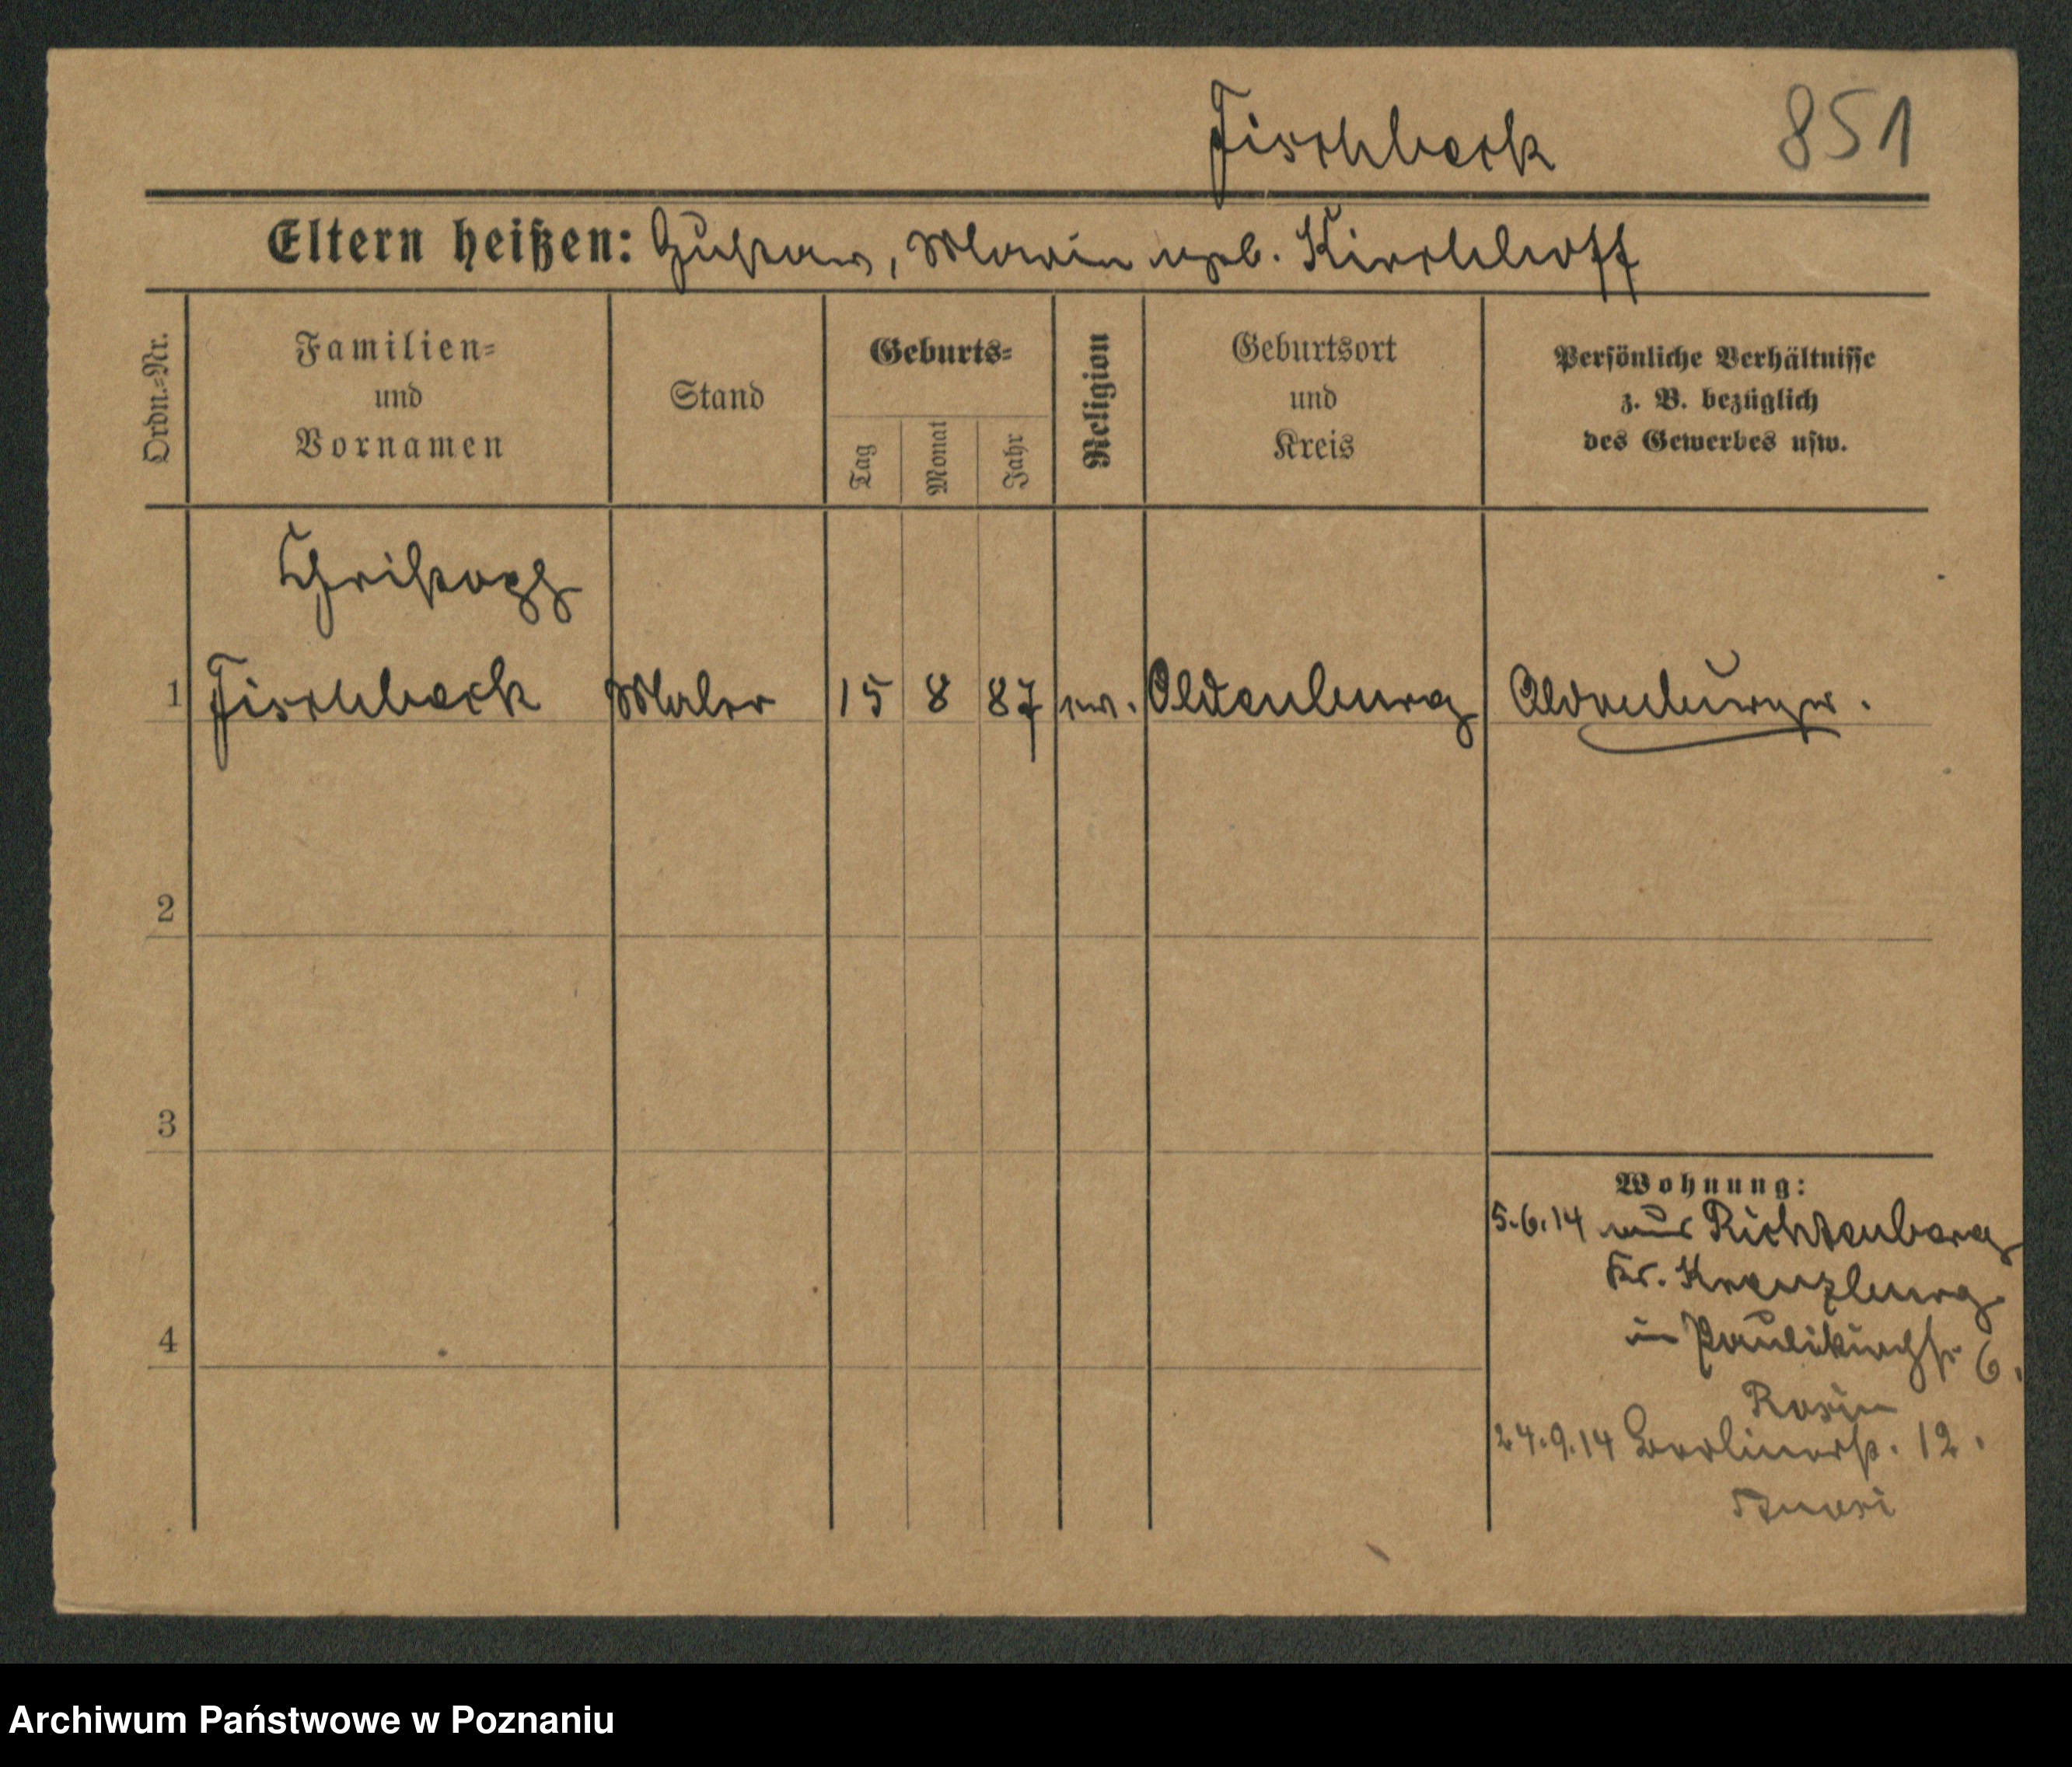 Fischbeck 851
Eltern heißen: Gustav, Marie geb. Kirchhoff
Ordn.=Nr.
Familien=
und
Vornamen
Stand
Geburts=
Tag
Monat
Jahr
Religion
Geburtsort
und
Kreis
Persönliche Verhältnisse
z. B. bezüglich
des Gewerbes usw.
Christoph
1 Fischbeck Maler 15 8 87 ev. Oldenburg Oldenburger.
2
3
4
Wohnung:
5.6.14 aus Richtenberg
Kr.
in Paulikirchstr 6.
24.9.14 Berlinerstr. 12.
Archiwum Państwowe w Poznaniu